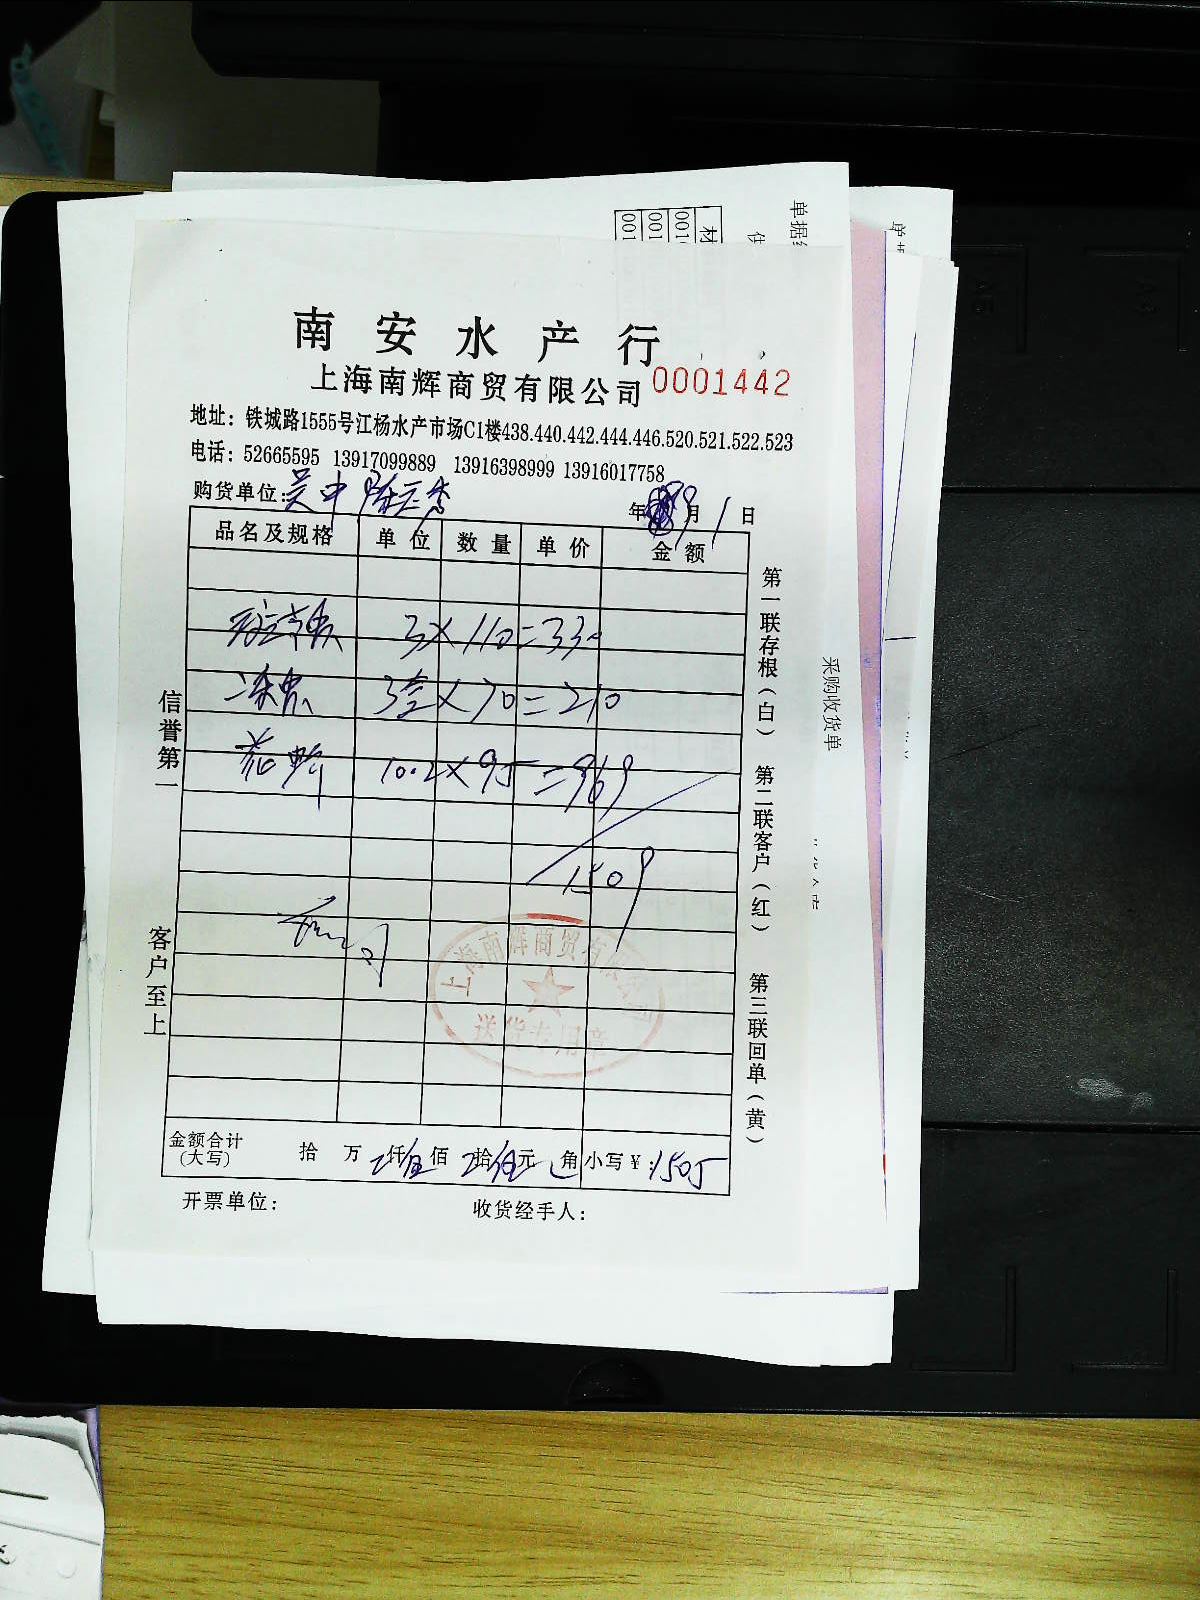 南安水产行
上海南辉商贸有限公司 0001442
地址：铁城路1555号江杨水产市场C1楼438.440.442.444.446.520.521.522.523
电话：52665595 13917099889 13916398999 13916017758
购货单位：吴中 年 9月1日
品名及规格 单位 数量 单价 金额
3×110=330
3盒×70=210
10.2×95=969
1509
上海南辉商贸有限公司
送货专用章
金额合计(大写) 拾 万 仟 佰 拾 元 角 小写￥:1505
开票单位： 收货经手人：
信誉第一
客户至上
第一联存根(白) 第二联客户(红) 第三联回单(黄)
采购收货单
单据
材
001
001
001